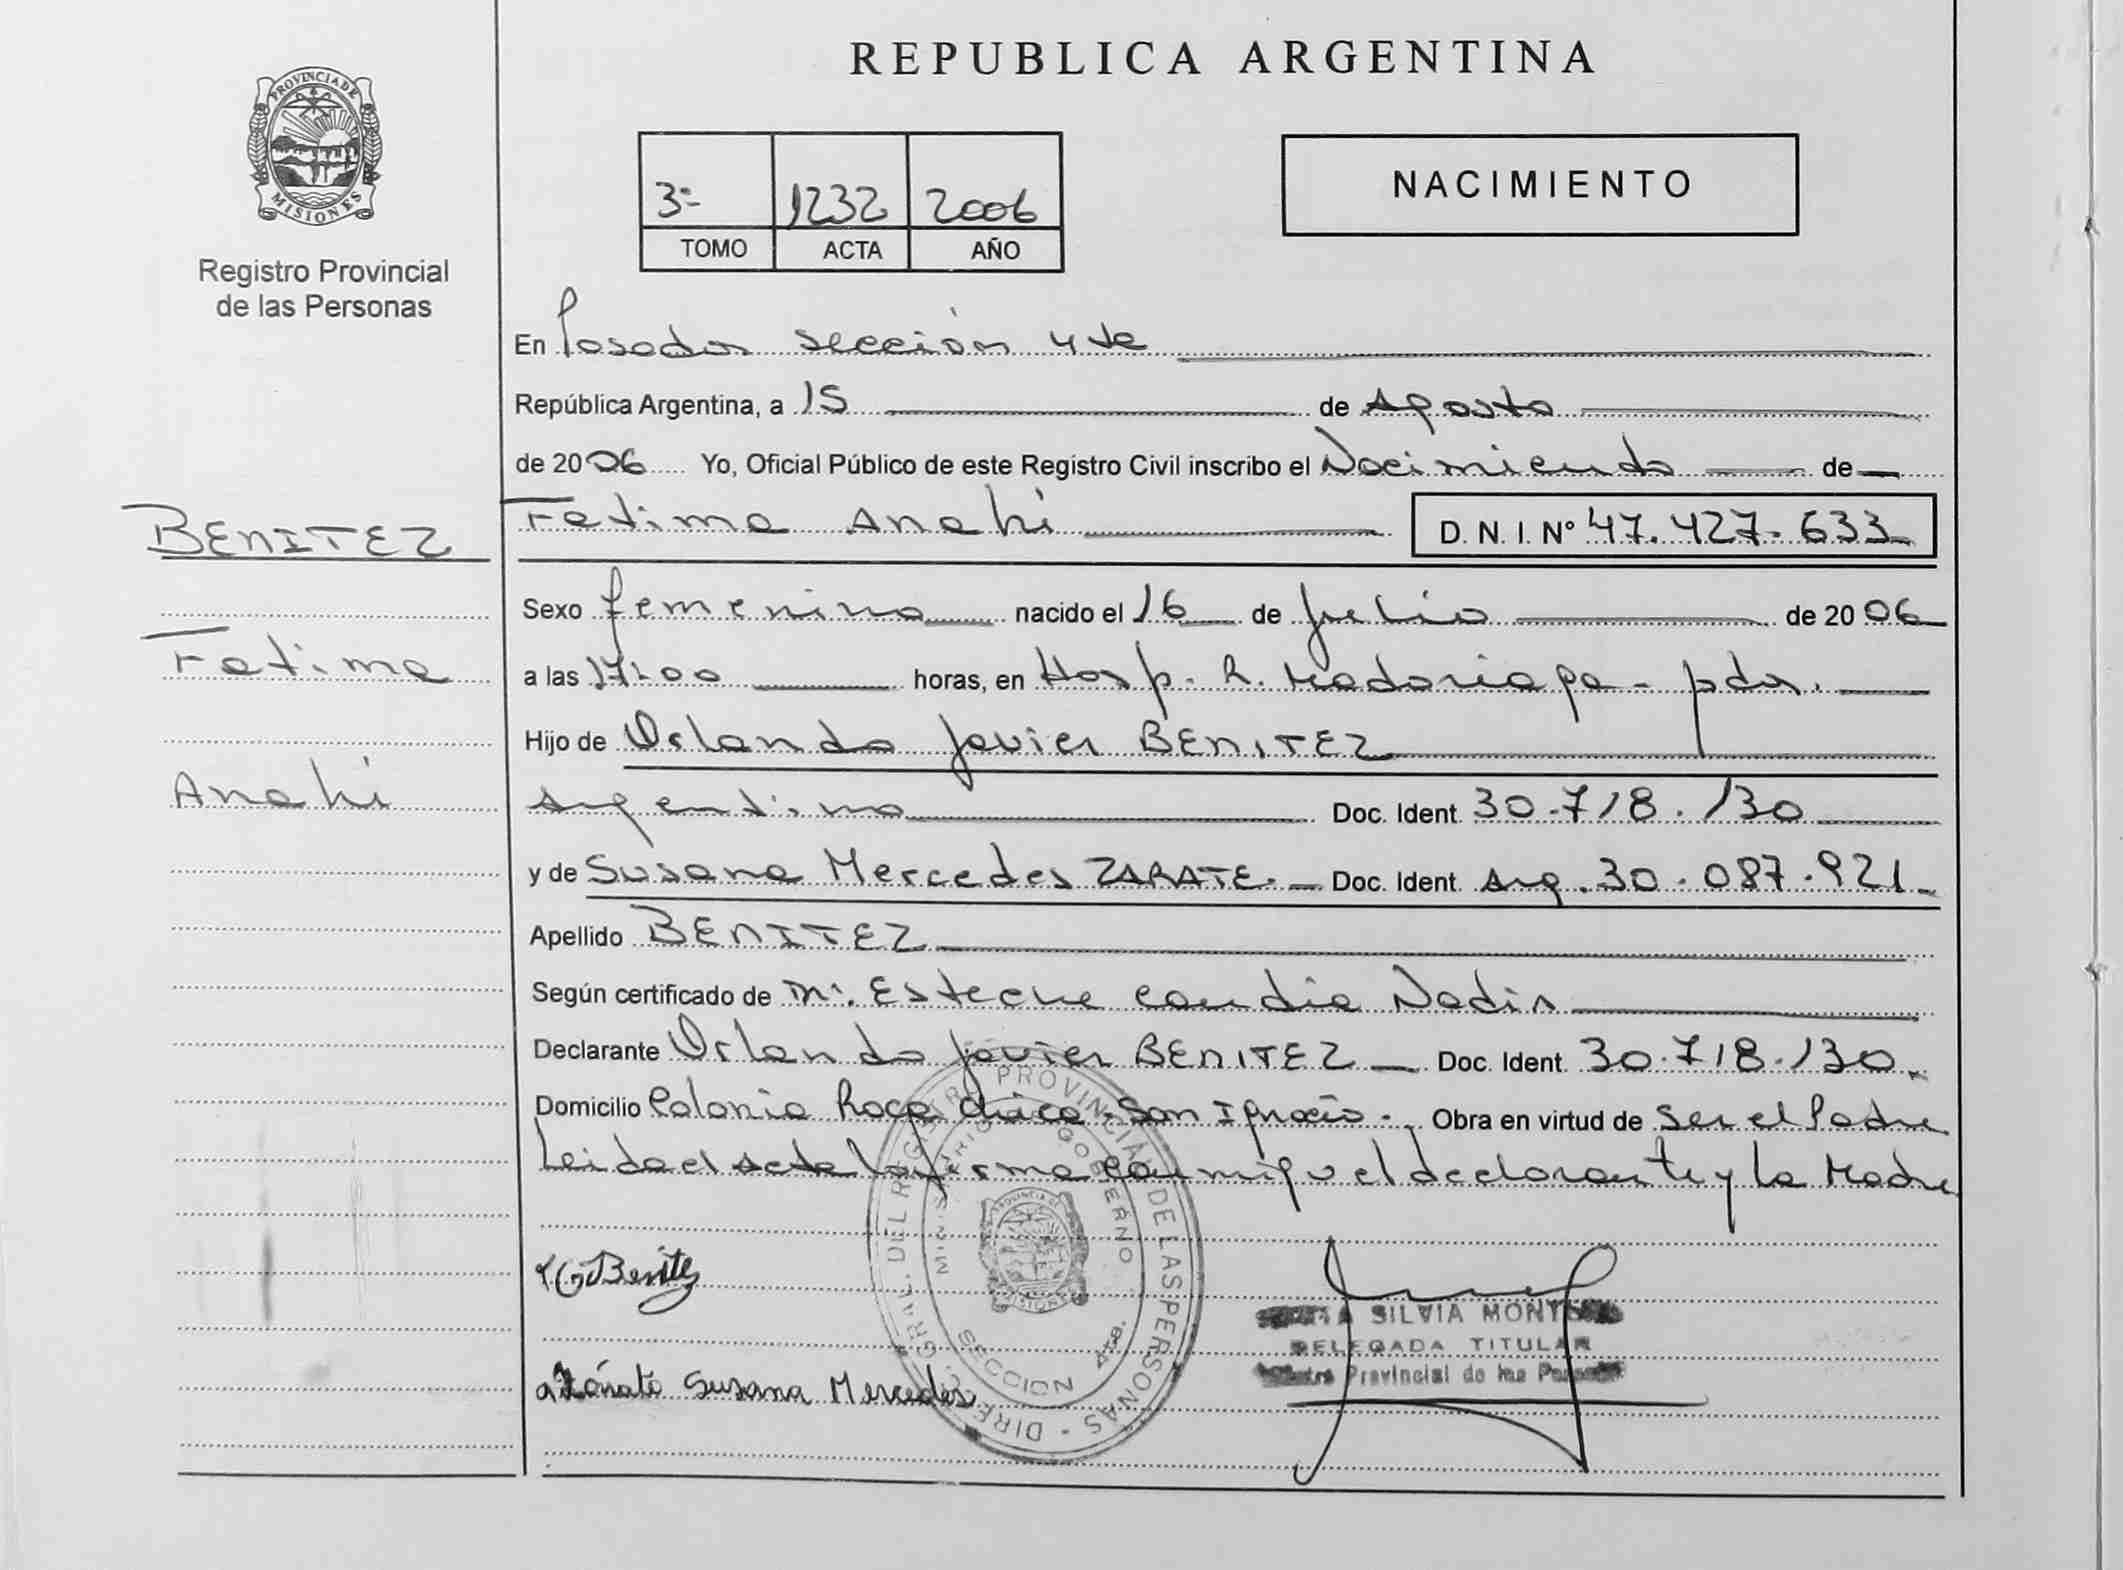 PROVINCIA DE
MISIONES
Registro Provincial
de las Personas
BENITEZ
Fatima
Anahi
REPUBLICA ARGENTINA
3- 1232 2006
TOMO ACTA AÑO
NACIMIENTO
En Posadas sección 4ta
República Argentina, a 15 de Agosto
de 2006 Yo, Oficial Público de este Registro Civil inscribo el Nacimiento de
Fatima Anahi D. N. I. Nº 47.427.633
Sexo femenino nacido el 16 de Julio de 2006
a las 17-00 horas, en Hosp. R. Madariaga - pdas.
Hijo de Orlando Javier BENITEZ
Argentino Doc. Ident. 30.718.130
y de Susana Mercedes ZARATE. Doc. Ident. Arg. 30.087.921
Apellido BENITEZ
Según certificado de Esteche Nadia
Declarante Orlando Javier BENITEZ Doc. Ident. 30.718.130
Domicilio Colonia Roca chica - San Ignacio. Obra en virtud de ser el Padre
Leida el acta la firma conmigo el declarante y la Madre
Benitez
Susana Mercedes
DIREC. GRAL. DEL REGISTRO PROVINCIAL DE LAS PERSONAS
MINISTERIO GOBIERNO
PROVINCIA DE
MISIONES
SECCION 4ta.
SILVIA
DELEGADA TITULAR
Provincial de las